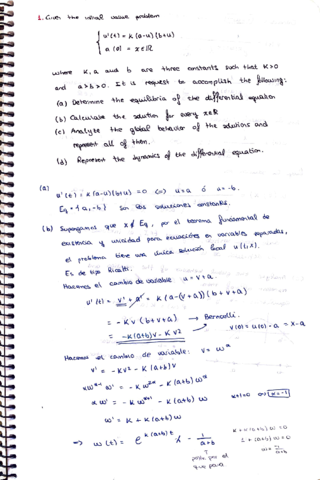 1. Given the initial value problem
u'(t) = K(a-u)(b+u)
u(0) = x∈ℝ
where K, a and b are three constants such that K>0
and a>b>0. It is request to accomplish the following:
(a) Determine the equilibria of the differential equation
(b) Calculate the solution for every x∈ℝ
(c) Analyze the global behavior of the solutions and
represent all of them.
(d) Represent the dynamics of the differential equation.
(a) u'(t) = K(a-u)(b+u) = 0 <=> u=a ó u=-b.
Eq = {a,-b} son las soluciones constantes.
(b) Supongamos que x∉Eq, por el teorema fundamental de
existencia y unicidad para ecuaciones en variables separadas,
el problema tiene una única solución local u(t,x).
Es de tipo Ricatti.
Hacemos el cambio de variable u = v+a.
u'(t) = v' + a' = K(a-(v+a))(b+v+a)
= -Kv(b+v+a) → Bernoulli.
= -K(a+b)v - Kv² v(0) = u(0)-a = x-a
Hacemos el cambio de variable: v = w^α
v' = -Kv² - K(a+b)v
αw^α-1 w' = -Kw^2α - K(a+b)w^α
αw' = -Kw^α+1 - K(a+b)w α+1=0 <=> α=-1
w' = K + K(a+b)w
=> w(t) = e^K(a+b)t - 1/(a+b)
K+K(a+b)w=0
1+(a+b)w=0